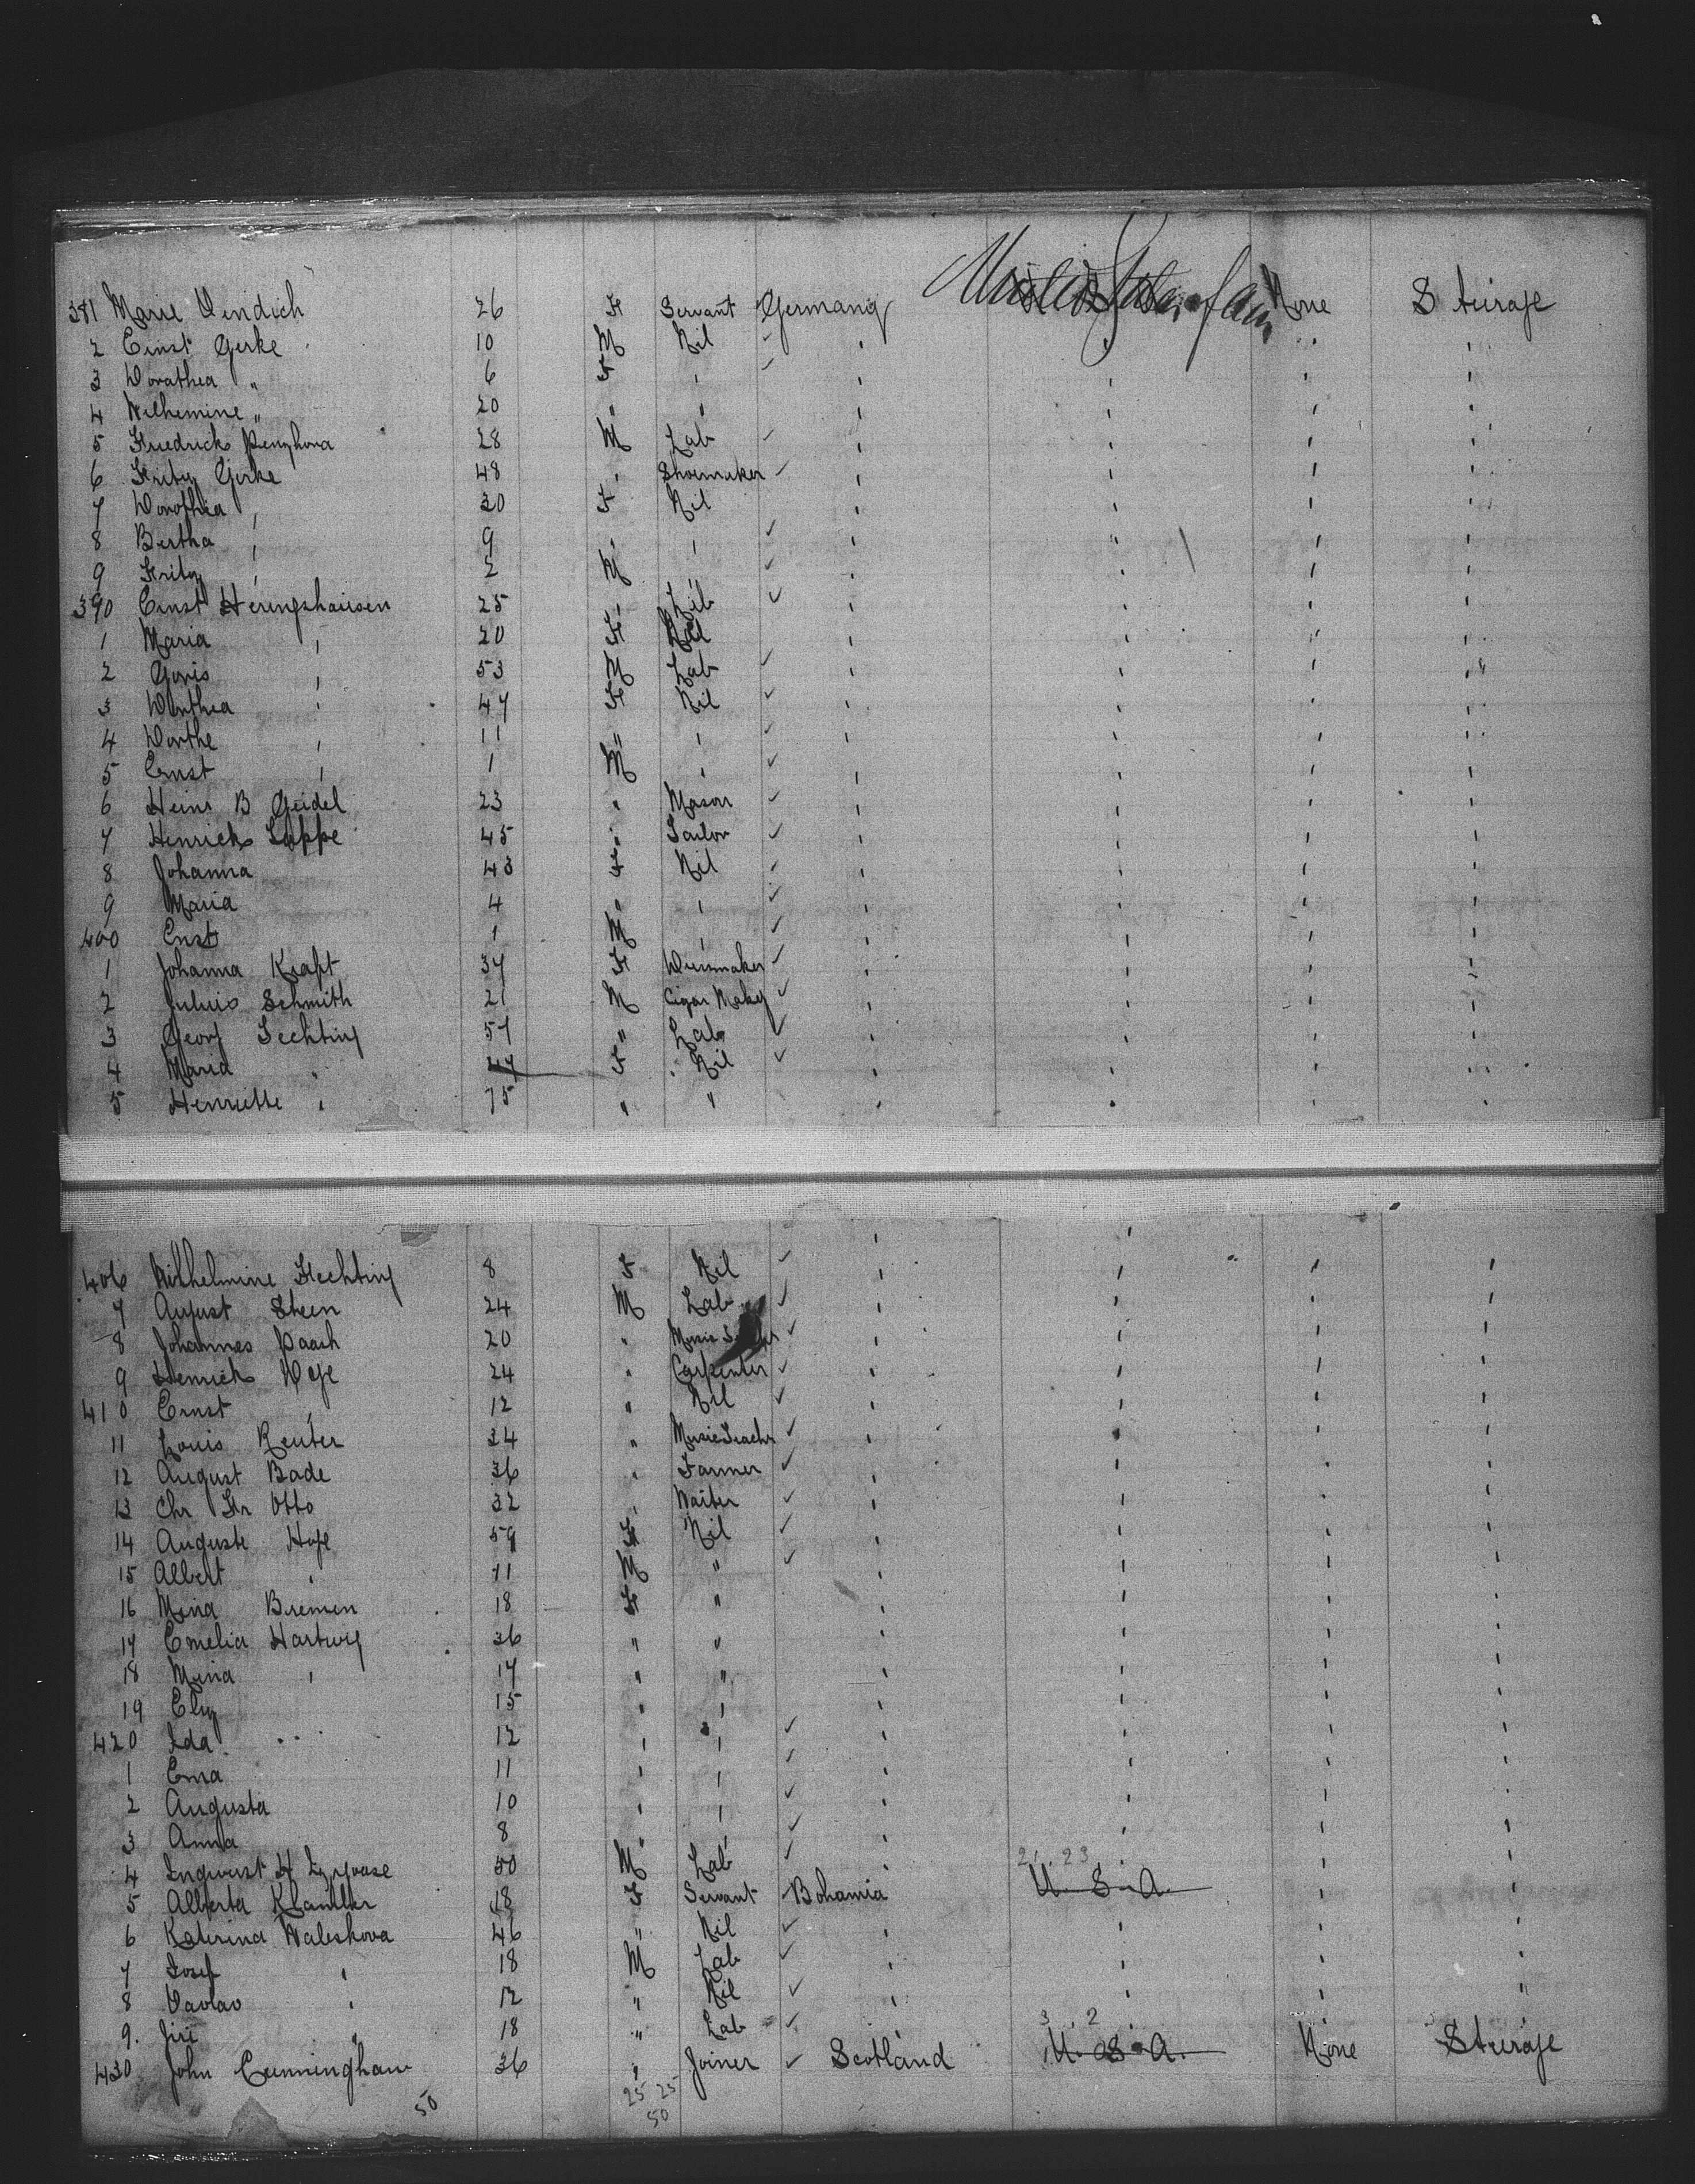 381 Marie Vendich 26 F Servant Germany None Steirage
2 Ernst Gerke 10 M Nil ✓ ' ' ' '
3 Dorathea " 6 F ' ✓ ' ' ' '
4 Wilhemine " 20 " " ' ' ' '
5 Friedrich 28 M Lab ✓ ' ' ' '
6 Fritz Gerke 48 ' Shoemaker ✓ ' ' ' '
7 Dorothea ' 30 F Nil ' ' ' '
8 Bertha ' 9 ' ' ✓ ' ' ' '
9 Fritz ' 2 M ' ✓ ' ' ' '
390 Ernst Heringshausen 25 ' Lab ✓ ' ' ' '
1 Maria ' 20 F Nil ' ' ' '
2 ' 53 M Lab ✓ ' ' ' '
3 Dorthea ' 47 F Nil ✓ ' ' ' '
4 Dorthe ' 11 " ' ✓ ' ' ' '
5 Ernst ' 1 M ' ✓ ' ' ' '
6 Heinr B Geidel 23 " Mason ✓ ' ' ' '
7 Henrich Lappe 45 " Tailor ✓ ' ' ' '
8 Johanna 43 F Nil ✓ ' ' ' '
9 Maria 4 " ' ✓ ' ' ' '
400 Enst 1 M ' ✓ ' ' ' '
1 Johanna Kraft 37 F ✓ ' ' ' '
2 Juluis Schmith 21 M Cigar ✓ ' ' ' '
3 Georg Fechting 57 " Lab ✓ ' ' ' '
4 Maria " F Nil ✓ ' ' ' '
5 Henriette " 75 " " ' ' ' '
406 Wilhelmine Fechting 8 F Nil ✓ ' ' ' '
7 August Steen 24 M Lab ✓ ' ' ' '
8 Johannes Paach 20 " Music ✓ ' ' ' '
9 Henrich 24 " Carpenter ✓ ' ' ' '
410 Ernst ' 12 " Nil ✓ ' ' ' '
11 Louis Reuter 34 " Music ✓ ' ' ' '
12 August Bade 36 " Farmer ✓ ' ' ' '
13 Chr Fr Otto 32 ' Waiter ✓ ' ' ' '
14 Auguste 59 F Nil ✓ ' ' ' '
15 Albert ' 11 M " ✓ ' ' ' '
16 Mina Bremen 18 F " ' ' ' '
17 Emelia Hartwig 36 " " ' ' ' '
18 Mina ' 17 " " ' ' ' '
19 15 " ' ' ' ' '
420 Ida 12 ' ' ✓ ' ' ' '
1 Ema 11 ' ' ✓ ' ' ' '
2 Augusta 10 ' ' ✓ ' ' ' '
3 Anna 8 " ' ✓ ' ' ' '
4 50 M Lab ✓ ' ' ' '
5 Alberta 18 F Servant Bohamia U.S.A. ' '
6 Katerina Waleskova 46 " Nil ✓ ' ' ' '
7 Josef ' 18 M Lab ✓ ' ' ' '
8 Vavlav ' 12 " Nil ✓ ' ' ' "
9. Jiri " 18 " Lab ✓ '
430 John Cunningham 36 ' Joiner ✓ Scotland U.S.A. None Steirage
50 25 25
50